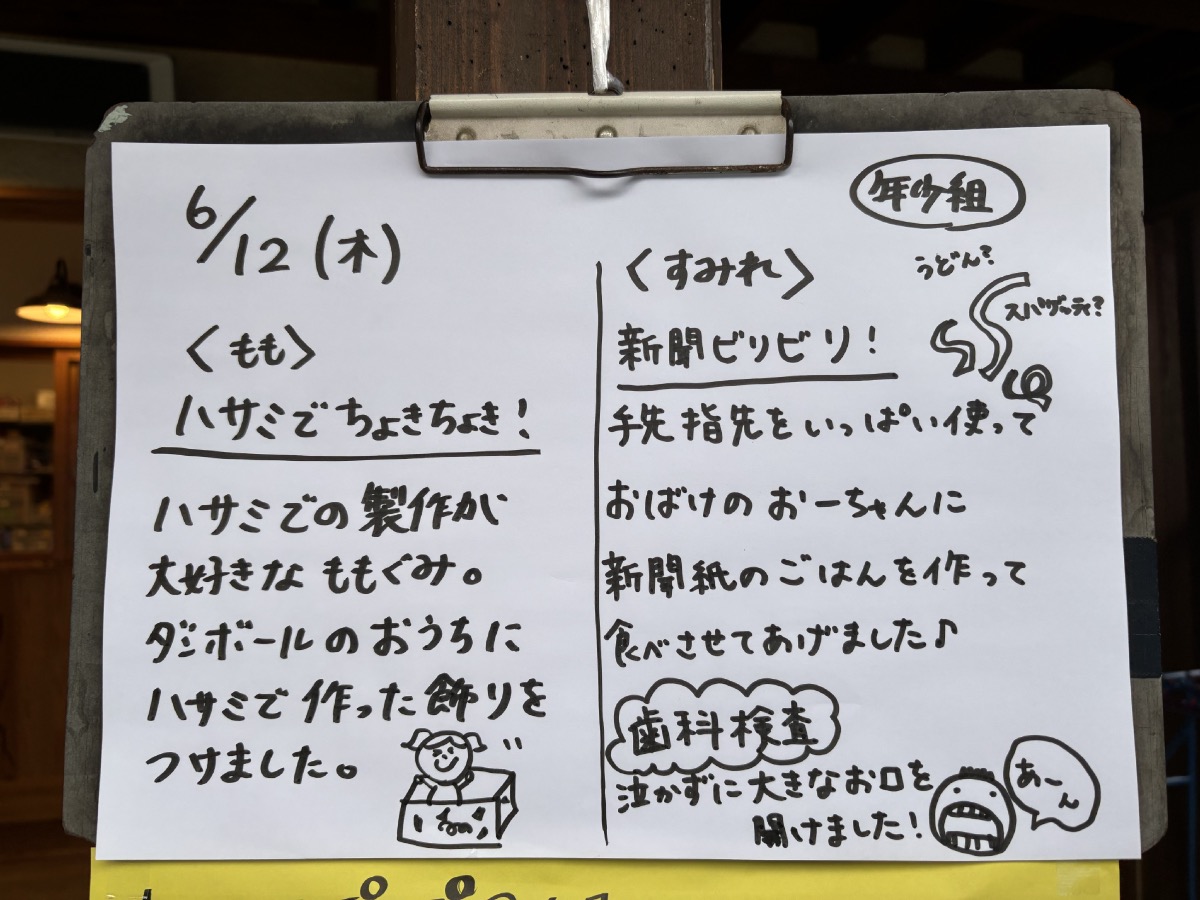 6/12(木)
〈もも〉
ハサミでちょきちょき!
ハサミでの製作が
大好きなももぐみ。
ダンボールのおうちに
ハサミで作った飾りを
つけました。
年少組
〈すみれ〉
うどん?
スパゲッティ?
新聞ビリビリ!
手先指先をいっぱい使って
おばけのおーちゃんに
新聞紙のごはんを作って
食べさせてあげました♪
歯科検査
泣かずに大きなお口を
開けました!
あーん